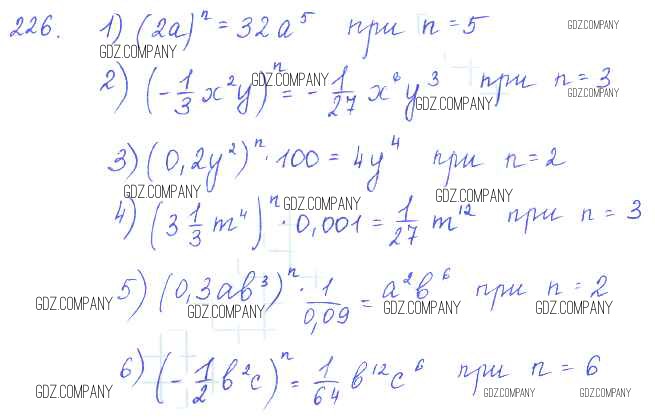 226. 1) (2a)^n = 32a^5 при n = 5 GDZ.COMPANY
GDZ.COMPANY
2) (-1/3 x^2y)^n = -1/27 x^6y^3 при n = 3 GDZ.COMPANY GDZ.COMPANY GDZ.COMPANY
3) (0,2y^2)^n · 100 = 4y^4 при n = 2
GDZ.COMPANY GDZ.COMPANY GDZ.COMPANY
4) (3 1/3 m^4)^n · 0,001 = 1/27 m^12 при n = 3
5) (0,3ab^3)^n · 1/0,09 = a^2b^6 при n = 2
GDZ.COMPANY GDZ.COMPANY GDZ.COMPANY GDZ.COMPANY
6) (-1/2 b^2c)^n = 1/64 b^12c^6 при n = 6
GDZ.COMPANY GDZ.COMPANY GDZ.COMPANY